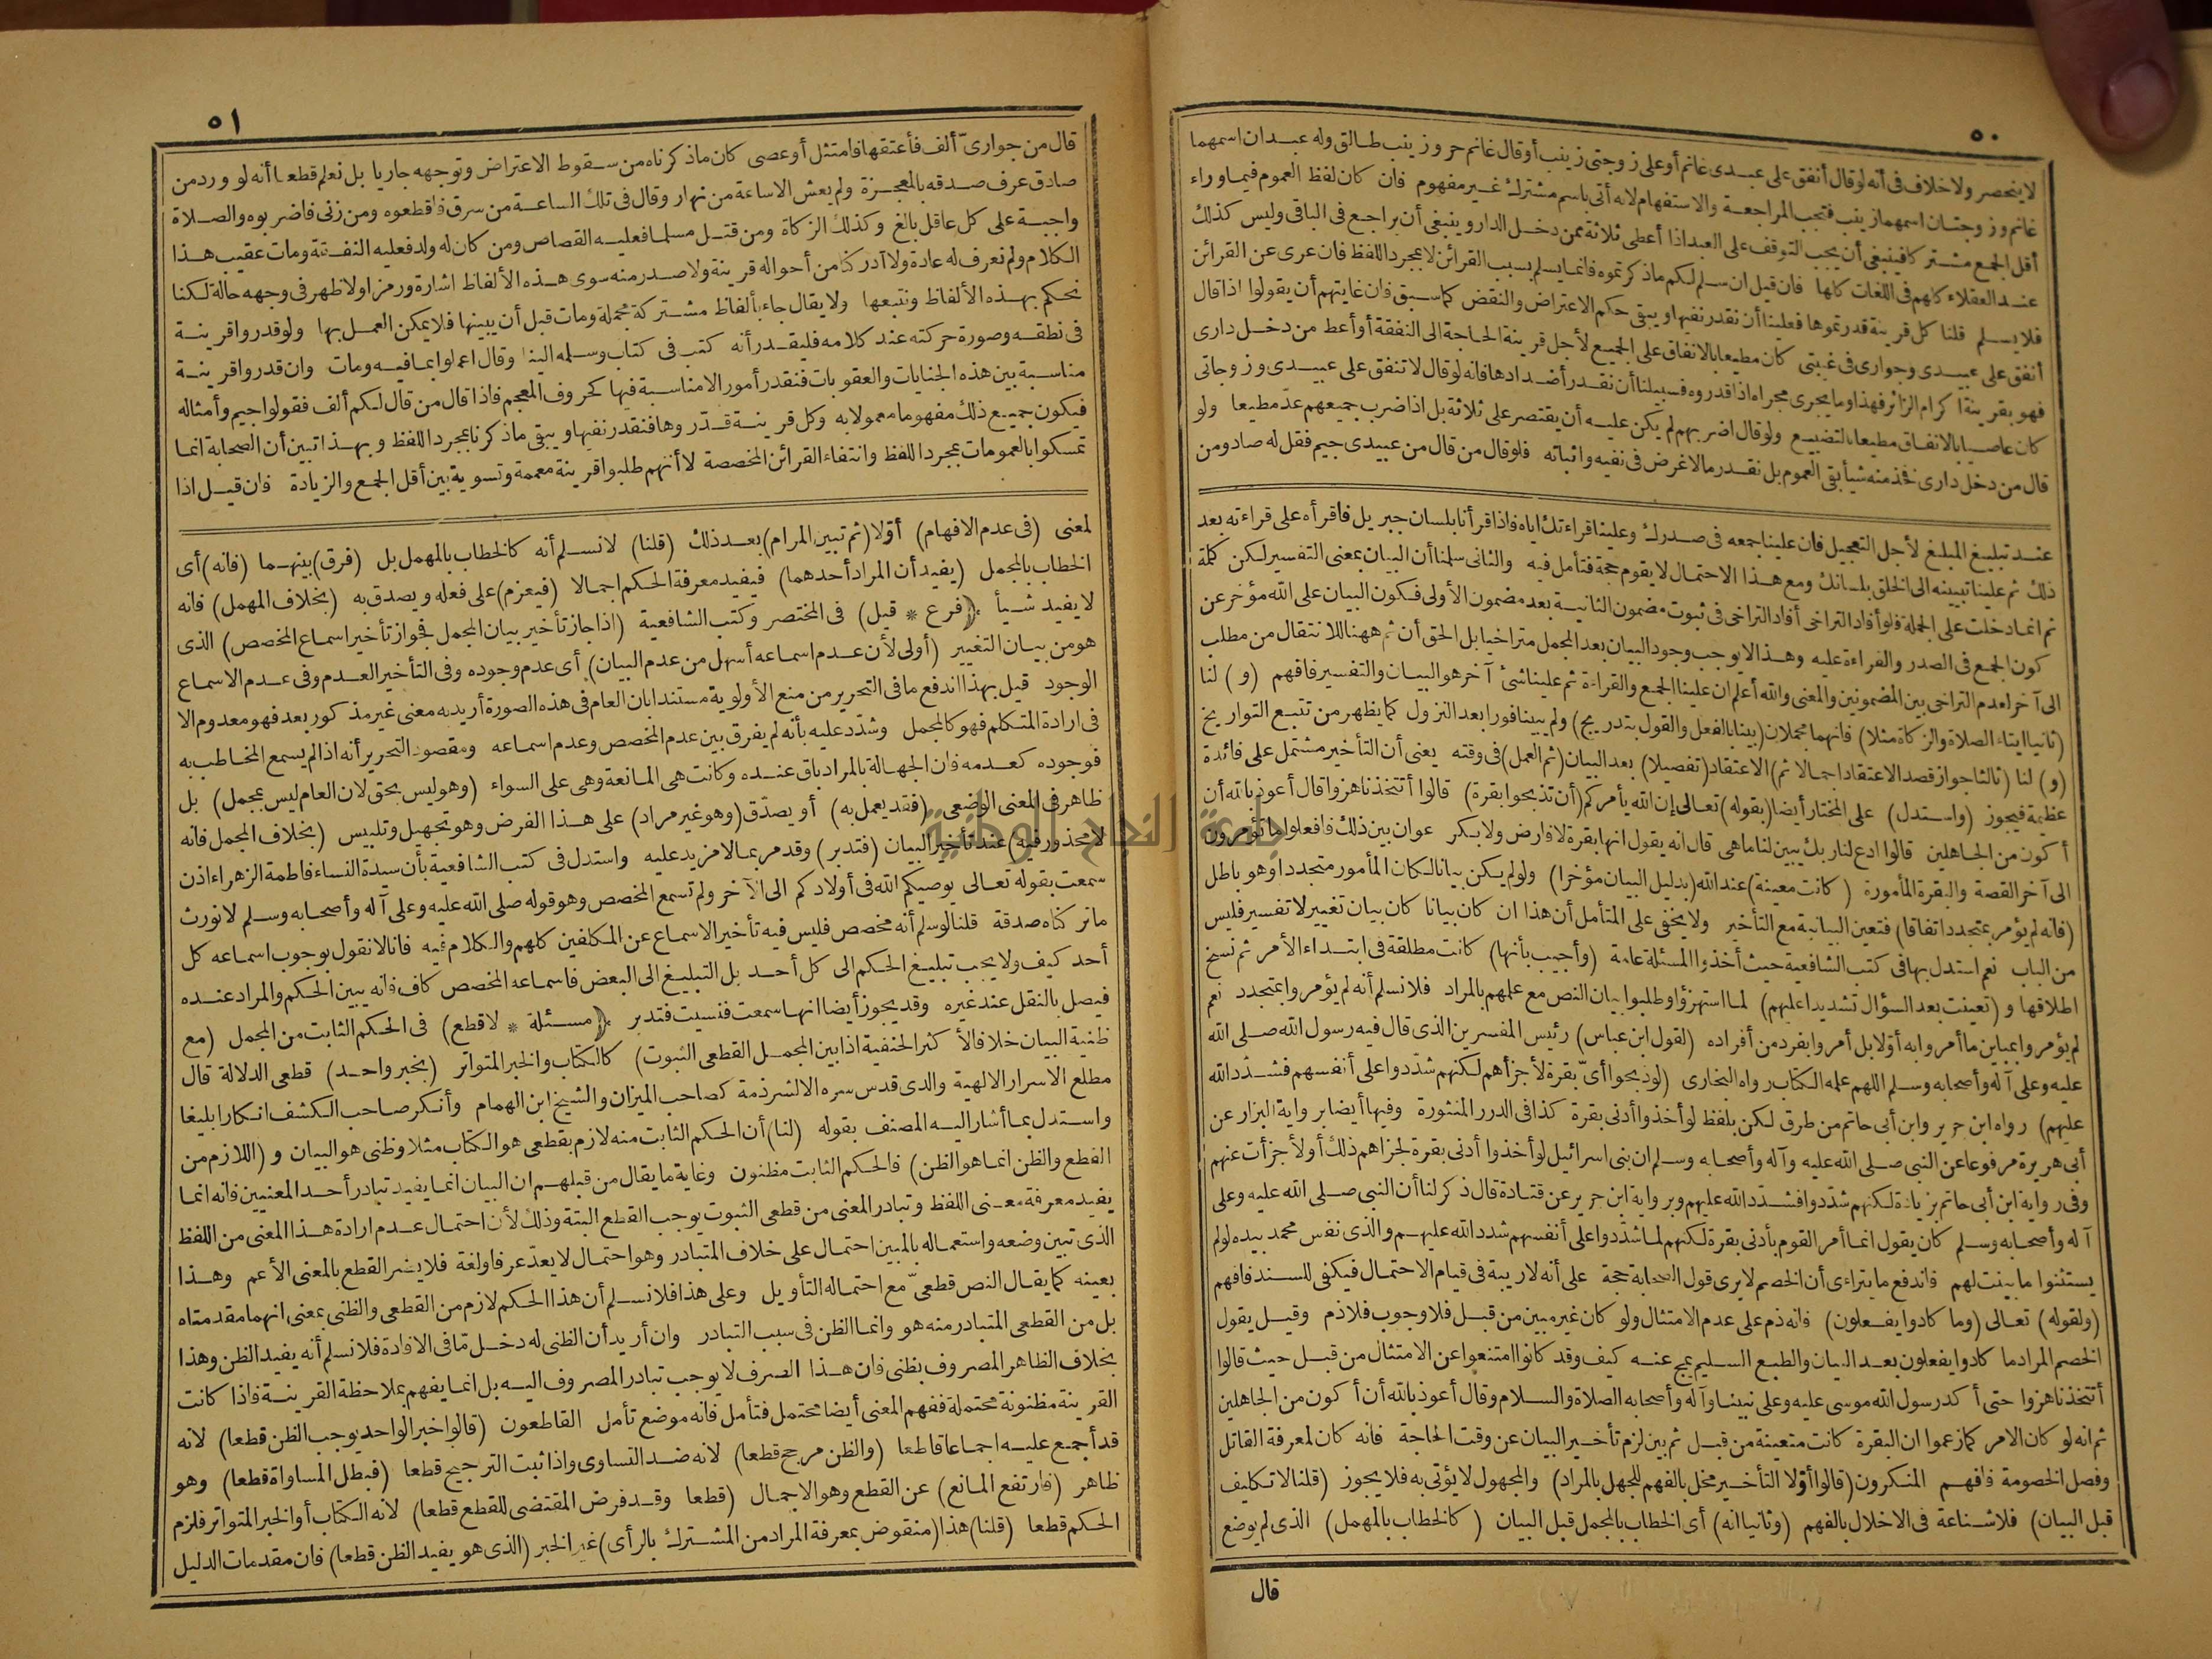 ٥٠
لا ينحصر ولا خلاف فى أنه لو قال أنفق على عبدى غانم أو على زوجتى زينب أو قال غانم حر وزينب طالق وله عبدان اسمهما
غانم وزوجتان اسمهما زينب فتجب المراجعة والاستفهام لانه أتى باسم مشترك غير مفهوم فان كان لفظ العموم فيما وراء
أقل الجمع مشتركا فينبغى أن يجب التوقف على العبد اذا أعطى ثلاثة ممن دخل الدار وينبغى أن يراجع فى الباقى وليس كذلك
عند العقلاء كلهم فى اللغات كلها فان قيل ان سلم لكم ماذكرتموه فانما يسلم بسبب القرائن لا بمجرد اللفظ فان عرى عن القرائن
فلا يسلم قلنا كل قرينة قدرتموها فعلينا أن نقدر نفيها ويبقى حكم الاعتراض والنقض كما سبق فان غايتهم أن يقولوا اذا قال
أنفق على عبيدى وجوارى فى غيبتى كان مطيعا بالانفاق على الجميع لأجل قرينة الحاجة الى النفقة أو أعط من دخل دارى
فهو بقرينة اكرام الزائر فهذا وما يجرى مجراه اذا قدروه فسبيلنا أن نقدر أضدادها فانه لو قال لا تنفق على عبيدى وزوجاتى
كان عاصيا بالانفاق مطيعا بالتضييع ولو قال اضربهم لم يكن عليه أن يقتصر على ثلاثة بل اذا ضرب جميعهم عد مطيعا ولو
قال من دخل دارى فخذ منه شيأ بقى العموم بل نقدر ما لا غرض فى نفيه واثباته فلو قال من قال من عبيدى جيم فقل له صاد ومن
عند تبليغ المبلغ لأجل التعجيل فان علينا جمعه فى صدرك وعلينا قراءتك اياه فاذا قرأنا بلسان جبريل فاقرأه على قراءته بعد
ذلك ثم علينا تبيينه الى الخلق بلسانك ومع هذا الاحتمال لا يقوم حجة فتأمل فيه والثانى سلمنا أن البيان بمعنى التفسير لكن كلمة
ثم انما دخلت على الجملة فلو أفاد التراخى أفاد التراخى فى ثبوت مضمون الثانية بعد مضمون الأولى فكون البيان على الله مؤخر عن
كون الجمع فى الصدر والقراءة عليه وهذا لا يوجب وجود البيان بعد المجمل متراخيا بل الحق أن ثم ههنا للانتقال من مطلب
الى آخر لعدم التراخى بين المضمونين والمعنى والله أعلم ان علينا الجمع والقراءة ثم علينا شئ آخر هو البيان والتفسير فافهم (و) لنا
(ثانيا ايتاء الصلاة والزكاة مثلا) فانهما مجملان (بينا بالفعل والقول بتدريج) ولم يبينا فورا بعد النزول كما يظهر من تتبع التواريخ
(و) لنا (ثالثا جواز قصد الاعتقاد اجمالا ثم) الاعتقاد (تفصيلا) بعد البيان (ثم العمل) فى وقته يعنى أن التأخير مشتمل على فائدة
عظيمة فيجوز (واستدل) على المختار أيضا (بقوله) تعالى إن الله يأمركم (أن تذبحوا بقرة) قالوا أتتخذنا هزوا قال أعوذ بالله أن
أكون من الجاهلين قالوا ادع لنا ربك يبين لنا ما هى قال انه يقول انها بقرة لا فارض ولا بكر عوان بين ذلك فافعلوا ما تؤمرون
الى آخر القصة والبقرة المأمورة (كانت معينة) عند الله (بدليل البيان مؤخرا) ولو لم يكن بيانا لكان المأمور متجددا وهو باطل
(فانه لم يؤمر بمتجدد اتفاقا) فتعين البيانية مع التأخير ولا يخفى على المتأمل أن هذا ان كان بيانا كان بيان تغيير لا تفسير فليس
من الباب نعم استدل بها فى كتب الشافعية حيث أخذوا المسئلة عامة (وأجيب بأنها) كانت مطلقة فى ابتداء الأمر ثم نسخ
اطلاقها و (تعينت بعد السؤال تشديدا عليهم) لما استهزؤا وطلبوا بيان النص مع علمهم بالمراد فلا نسلم أنه لم يؤمروا بمتجدد نعم
لم يؤمروا بمباين ما أمروا به أولا بل أمروا بفرد من أفراده (لقول ابن عباس) رئيس المفسرين الذى قال فيه رسول الله صلى الله
عليه وعلى آله وأصحابه وسلم اللهم علمه الكتاب رواه البخارى (لو ذبحوا أى بقرة لأجزأهم لكنهم شددوا على أنفسهم فشدد الله
عليهم) رواه ابن جرير وابن أبى حاتم من طرق لكن بلفظ لو أخذوا أدنى بقرة كذا فى الدرر المنثورة وفيها أيضا برواية البزار عن
أبى هريرة مرفوعا عن النبى صلى الله عليه وآله وأصحابه وسلم ان بنى اسرائيل لو أخذوا أدنى بقرة لجزاهم ذلك أو لأجزأت عنهم
وفى رواية ابن أبى حاتم بزيادة لكنهم شددوا فشدد الله عليهم وبرواية ابن جرير عن قتادة قال ذكر لنا أن النبى صلى الله عليه وعلى
آله وأصحابه وسلم كان يقول انما أمر القوم بأدنى بقرة لكنهم لما شددوا على أنفسهم شدد الله عليهم والذى نفس محمد بيده لو لم
يستثنوا ما بينت لهم فاندفع ما يتراءى أن الخصم لا يرى قول الصحابة حجة على أنه لا ريبة فى قيام الاحتمال فيكفى للسند فافهم
(ولقوله) تعالى (وما كادوا يفعلون) فانه ذم على عدم الامتثال ولو كان غير مبين من قبل فلا وجوب فلا ذم وقيل يقول
الخصم المراد ما كادوا يفعلون بعد البيان والطبع السليم يمج عنه كيف وقد كانوا امتنعوا عن الامتثال من قبل حيث قالوا
أتتخذنا هزوا حتى أكد رسول الله موسى عليه وعلى نبينا وآله وأصحابه الصلاة والسلام وقال أعوذ بالله أن أكون من الجاهلين
ثم انه لو كان الامر كما زعموا ان البقرة كانت متعينة من قبل ثم بين لزم تأخير البيان عن وقت الحاجة فانه كان لمعرفة القاتل
وفصل الخصومة فافهم المنكرون (قالوا أولا التأخير مخل بالفهم للجهل بالمراد) والمجهول لا يؤتى به فلا يجوز (قلنا لا تكليف
قبل البيان) فلا شناعة فى الاخلال بالفهم (وثانيا انه) أى الخطاب بالمجمل قبل البيان (كالخطاب بالمهمل) الذى لم يوضع
قال
٥١
قال من جوارى ألف فأعتقها فامتثل أو عصى كان ماذكرناه من سقوط الاعتراض وتوجهه جاريا بل نعلم قطعا أنه لو ورد من
صادق عرف صدقه بالمعجزة ولم يعش الا ساعة من نهار وقال فى تلك الساعة من سرق فاقطعوه ومن زنى فاضربوه والصلاة
واجبة على كل عاقل بالغ وكذلك الزكاة ومن قتل مسلما فعليه القصاص ومن كان له ولد فعليه النفقة ومات عقيب هذا
الكلام ولم نعرف له عادة ولا أدركنا من أحواله قرينة ولا صدر منه سوى هذه الألفاظ اشارة ورمز اولا ظهر فى وجهه حالة لكنا
نحكم بهذه الألفاظ ونتبعها ولا يقال جاء بألفاظ مشتركة مجملة ومات قبل أن يبينها فلا يمكن العمل بها ولو قدروا قرينة
فى نطقه وصورة حركته عند كلامه فليقدر أنه كتب فى كتاب وسلمه الينا وقال اعملوا بما فيه ومات وان قدروا قرينة
مناسبة بين هذه الجنايات والعقوبات فنقدر أمورا لا مناسبة فيها كحروف المعجم فاذا قال من قال لكم ألف فقولوا جيم وأمثاله
فيكون جميع ذلك مفهوما معمولا به وكل قرينة قدروها فنقدر نفيها ويبقى ماذكرنا بمجرد اللفظ وبهذا تبين أن الصحابة انما
تمسكوا بالعمومات بمجرد اللفظ وانتفاء القرائن المخصصة لا أنهم طلبوا قرينة معممة وتسوية بين أقل الجمع والزيادة فان قيل اذا
لمعنى (فى عدم الافهام) أولا (ثم تبيين المرام) بعد ذلك (قلنا) لا نسلم أنه كالخطاب بالمهمل بل (فرق) بينهما (فانه) أى
الخطاب بالمجمل (يفيد أن المراد أحدهما) فيفيد معرفة الحكم اجمالا (فيعزم) على فعله ويصدق به (بخلاف المهمل) فانه
لا يفيد شيأ ﴿فرع * قيل﴾ فى المختصر وكتب الشافعية (اذا جاز تأخير بيان المجمل فجواز تأخير اسماع المخصص) الذى
هو من بيان التغيير (أولى لأن عدم اسماعه أسهل من عدم البيان) أى عدم وجوده وفى التأخير العدم وفى عدم الاسماع
الوجود قيل بهذا اندفع ما فى التحرير من منع الأولوية مستندا بان العام فى هذه الصورة أريد به معنى غير مذكور بعد فهو معدوم الا
فى ارادة المتكلم فهو كالمجمل وشدد عليه بأنه لم يفرق بين عدم المخصص وعدم اسماعه ومقصود التحرير أنه اذا لم يسمع المخاطب به
فوجوده كعدمه فان الجهالة بالمراد باق عنده وكانت هى المانعة وهى على السواء (وهو ليس بحق لان العام ليس بمجمل) بل
ظاهر فى المعنى الوضعى (فقد يعمل به) أو يصدق (وهو غير مراد) على هذا الفرض وهو تجهيل وتلبيس (بخلاف المجمل فانه
لا محذور فيه) عند تأخير البيان (فتدبر) وقد مر بما لا مزيد عليه واستدل فى كتب الشافعية بأن سيدة النساء فاطمة الزهراء اذن
سمعت بقوله تعالى يوصيكم الله فى أولادكم الى الآخر ولم تسمع المخصص وهو قوله صلى الله عليه وعلى آله وأصحابه وسلم لا نورث
ما تركناه صدقة قلنا لو سلم أنه مخصص فليس فيه تأخير الاسماع عن المكلفين كلهم والكلام فيه فانا لا نقول بوجوب اسماعه كل
أحد كيف ولا يجب تبليغ الحكم الى كل أحد بل التبليغ الى البعض فاسماعه المخصص كاف فانه يبين الحكم والمراد عنده
فيصل بالنقل عند غيره وقد يجوز أيضا انها سمعت فنسيت فتدبر ﴿مسئلة * لا قطع﴾ فى الحكم الثابت من المجمل (مع
ظنية البيان خلافا لأكثر الحنفية اذا بين المجمل القطعى الثبوت) كالكتاب والخبر المتواتر (بخبر واحد) قطعى الدلالة قال
مطلع الاسرار الالهية والدى قدس سره الا لشرذمة كصاحب الميزان والشيخ ابن الهمام وأنكر صاحب الكشف انكارا بليغا
واستدل بما أشار اليه المصنف بقوله (لنا) أن الحكم الثابت منه لازم بقطعى هو الكتاب مثلا وظنى هو البيان و (اللازم من
القطع والظن انما هو الظن) فالحكم الثابت مظنون وغاية ما يقال من قبلهم ان البيان انما يفيد تبادر أحد المعنيين فانه انما
يفيد معرفة معنى اللفظ وتبادر المعنى من قطعى الثبوت يوجب القطع البتة وذلك لأن احتمال عدم ارادة هذا المعنى من اللفظ
الذى تبين وضعه واستعماله بالمبين احتمال على خلاف المتبادر وهو احتمال لا يعد عرفا ولغة فلا يضر القطع بالمعنى الأعم وهذا
بعينه كما يقال النص قطعى مع احتماله التأويل وعلى هذا فلا نسلم أن هذا الحكم لازم من القطعى والظنى بمعنى انهما مقدمتاه
بل من القطعى المتبادر منه هو وانما الظن فى سبب التبادر وان أريد أن الظنى له دخل ما فى الافادة فلا نسلم أنه يفيد الظن وهذا
بخلاف الظاهر المصروف بظنى فان هذا الصرف لا يوجب تبادر المصروف اليه بل انما يفهم بملاحظة القرينة فاذا كانت
القرينة مظنونة محتملة ففهم المعنى أيضا محتمل فتأمل فانه موضع تأمل القاطعون (قالوا خبر الواحد يوجب الظن قطعا) لانه
قد أجمع عليه اجماعا قاطعا (والظن مرجح قطعا) لانه ضد التساوى واذا ثبت الترجيح قطعا (فبطل المساواة قطعا) وهو
ظاهر (فارتفع المانع) عن القطع وهو الاجمال (قطعا وقد فرض المقتضى للقطع قطعا) لانه الكتاب أو الخبر المتواتر فلزم
الحكم قطعا (قلنا) هذا (منقوض بمعرفة المراد من المشترك بالرأى) غير الخبر (الذى هو يفيد الظن قطعا) فان مقدمات الدليل
جامعة النجاح الوطنية